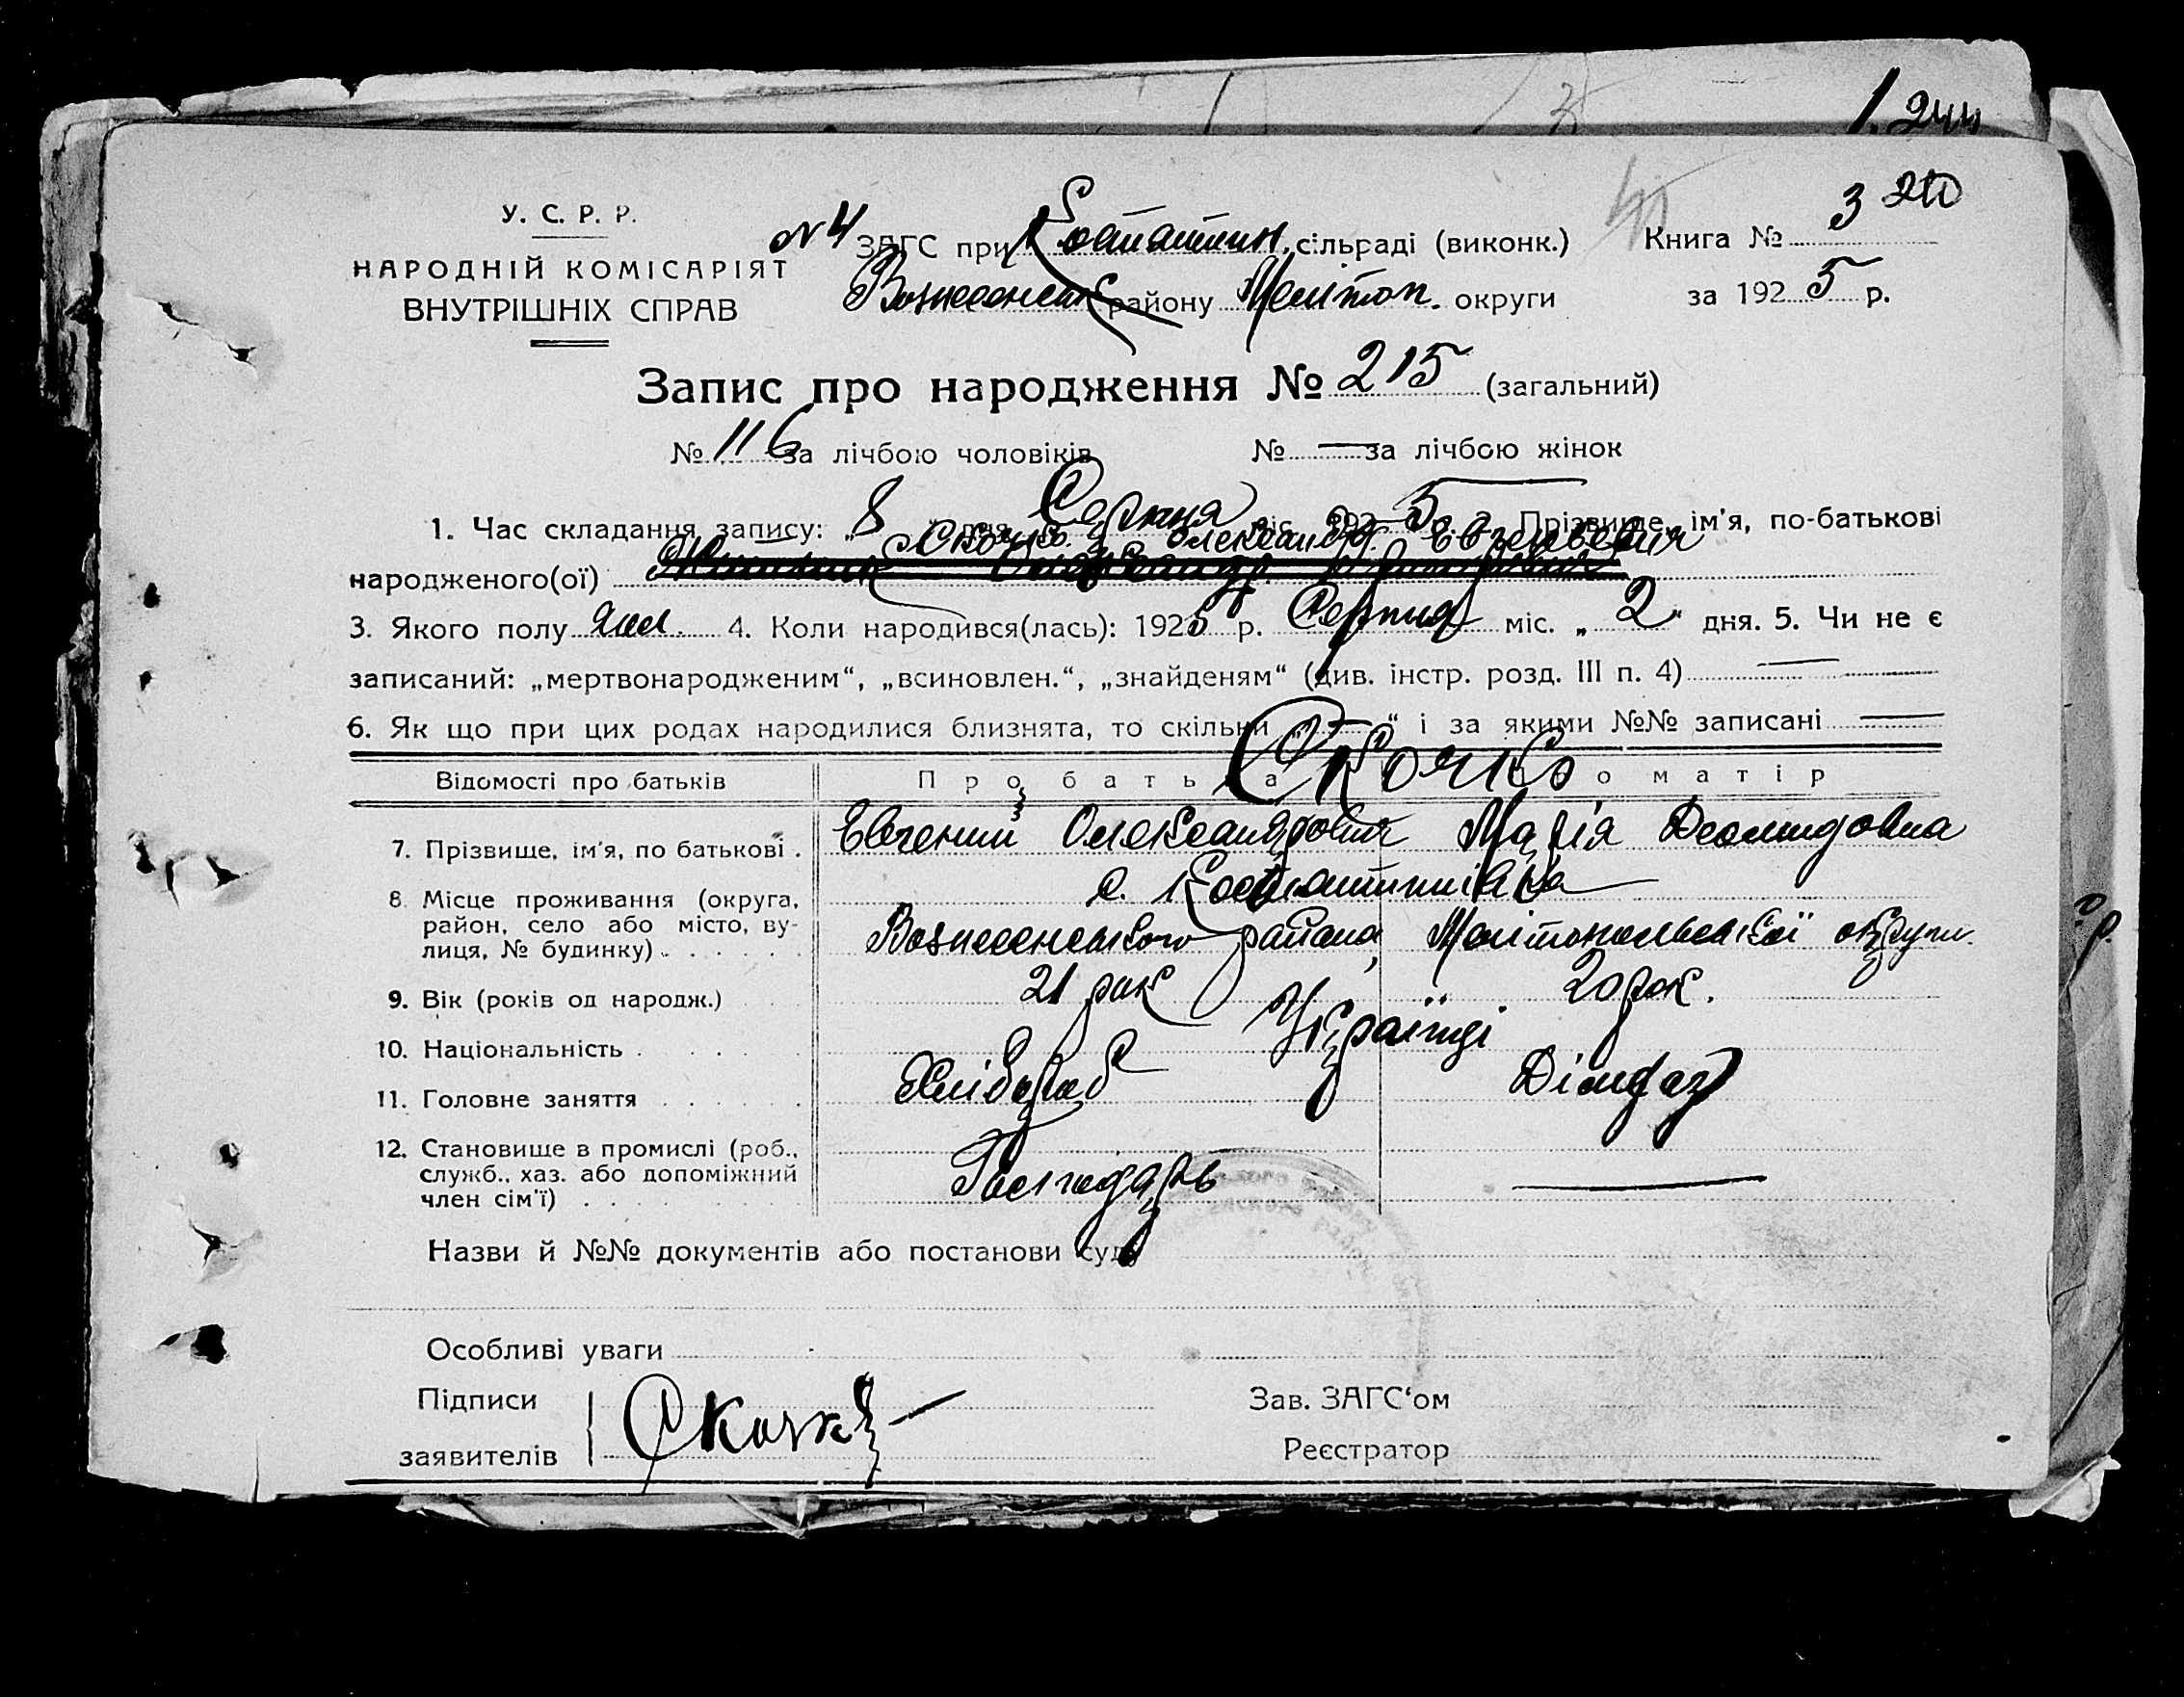 1 244
У. С. Р. Р. №4 ЗАГС при Костантин. сільраді (виконк.) Книга № 3
НАРОДНІЙ КОМІСАРІЯТ
ВНУТРІШНІХ СПРАВ
Вознесенськ району Мелітоп. округи за 1925 р.
Запис про народження № 215 (загальний)
№ 116 за лічбою чоловіків № — за лічбою жінок
1. Час складання запису: „ 8 " дня Серпня міс. 192 5 р. 2. Прізвище, ім'я, по-батькові
Скочко Олександр Евгеневич
народженого(ої)
3. Якого полу чол. 4. Коли народився(лась): 1925 р. Серпня міс. „ 2 " дня. 5. Чи не є
записаний: „мертвонародженим“, „всиновлен.“, „знайденям“ (див. інстр. розд. III п. 4) —
6. Як що при цих родах народилися близнята, то скільки „ — " і за якими №№ записані —
Відомості про батьків Про батька Про матір
Скочко
7. Прізвище, ім'я, по батькові . Евгений Олександрович Марія Деомидовна
8. Місце проживання (округа, район, село або місто, вулиця, № будинку) . . . . . .
с. Костантинівка
Вознесенського района, Мелітопольської округи.
9. Вік (років од народж.) 21 рок 20 рок.
10. Національність . . . . . Українці
11. Головне заняття . . . . . . Хлібороб
12. Становище в промислі (роб., служб., хаз. або допоміжний член сім'ї) . . . . . . Господарь —
Назви й №№ документів або постанови суду
Особливі уваги
Підписи
заявителів
Скочко
Зав. ЗАГС‘ом
Реєстратор